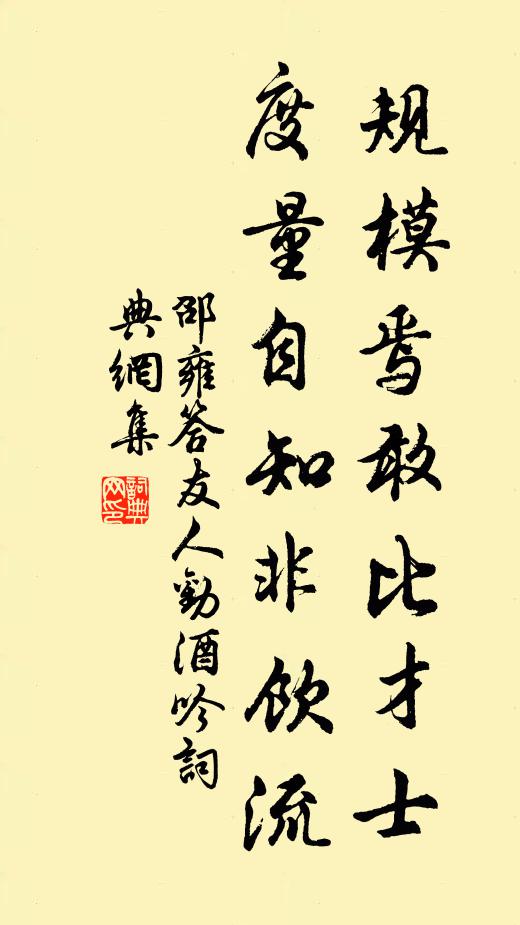 規模焉敢比才士
度量自知非飲流
邵雍答友人勸酒吟詞
典網集
詞典网印